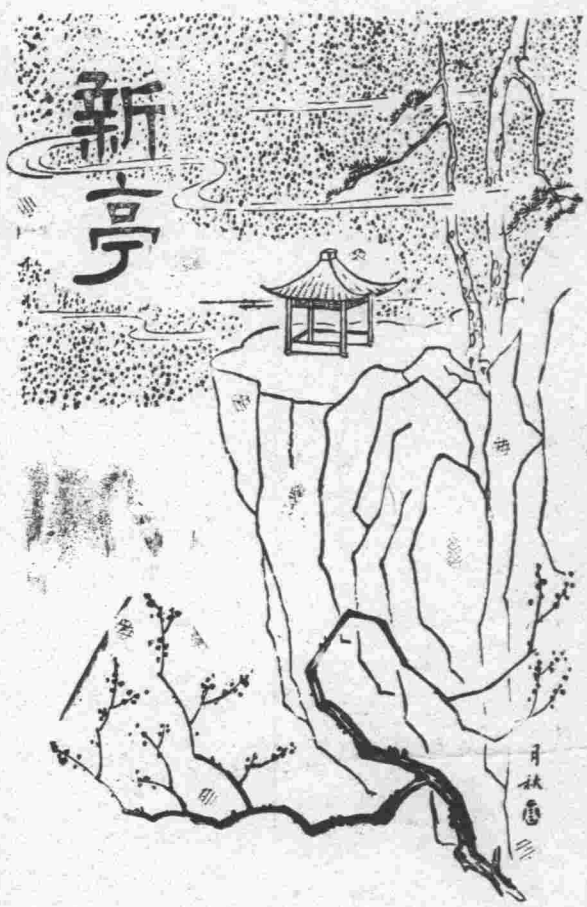 新亭
月秋